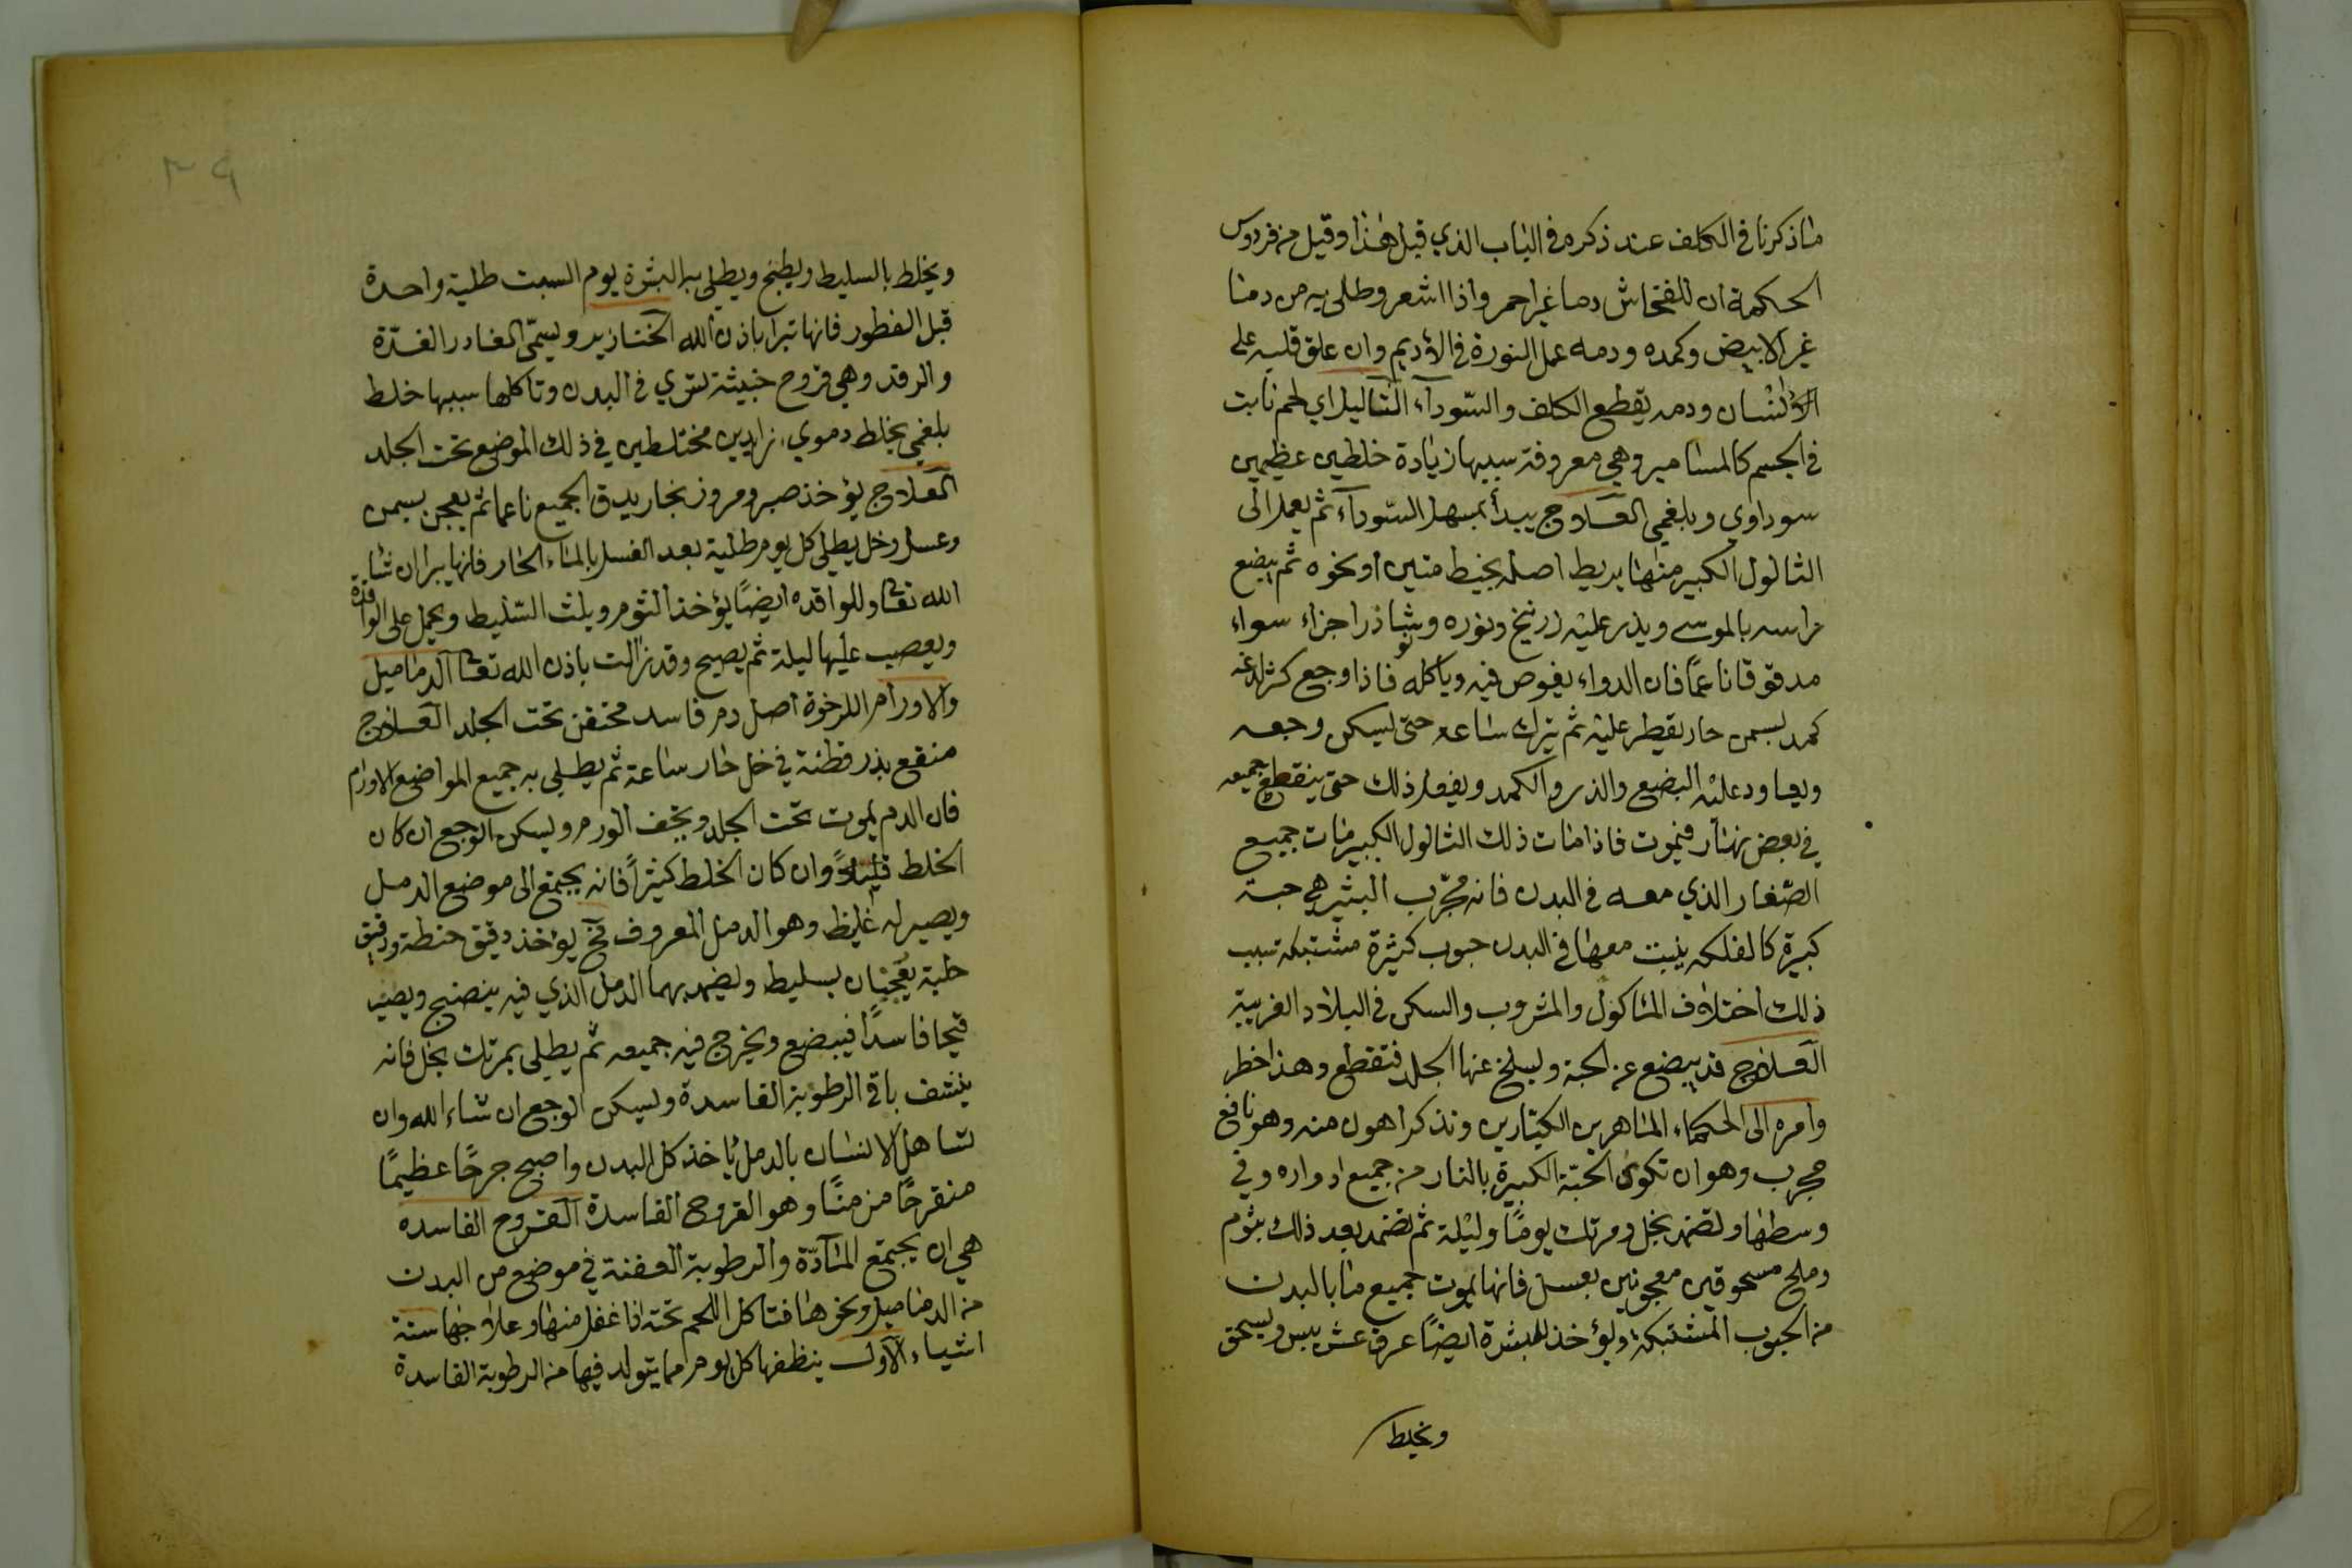 ما ذكرنا في الكلف عند ذكره في الباب الذي قبل هذا وقيل من فردوس
الحكمة ان للخفاش دما غير احمر واذا اشعر وطلي به من دمنا
غير الابيض وكمده ودمه عمل النورة في الأديم وان علق قلبه على
الانسان ودمه يقطع الكلف والسوداء الثاليل اي لحم نابت
في الجسم كالمسامير وهي معروفة سببها زيادة خلطين عظيمين
سوداوي وبلغمي العلاج يبدأ بمسهل السوداء ثم يعمد الى
الثالول الكبير منها يربط اصله بخيط متين او نحوه ثم يبضع
راسه بالموسى ويذر عليه زرنيخ ونوره ونشاذر اجزاء سواء
مدقوقا ناعما فان الدواء يغوص فيه وياكله فاذا وجع كثر لدغه
كمد بسمن حار يقطر عليه ثم يترك ساعه حتى يسكن وجعه
ويعاود عليه البضع والذر والكمد ويفعل ذلك حتى ينقطع جميعه
في بعض نهار فيموت فاذا مات ذلك الثالول الكبير مات جميع
الصغار الذي معه في البدن فانه مجرب البثر هي حبة
كبيرة كالفلكه ينبت معها في البدن حبوب كثيرة مشتبكه سبب
ذلك اختلاف الماكول والمشروب والسكن في البلاد الغريبة
العلاج قد يبضع عن الحبة ويسلخ عنها الجلد فتقطع وهذا خطر
وامره الى الحكماء الماهرين الكيتارين ونذكر اهون منه وهو نافع
مجرب وهو ان تكوى الحبة الكبيرة بالنار من جميع ادواره وفي
وسطها وتضمد بخل ومرتك يوما وليلة ثم تضمد بعد ذلك بثوم
وملح مسحوقين معجونين بعسل فانها يموت جميع ما بالبدن
من الحبوب المشتبكة ويؤخذ للبثرة ايضا عرق عشر يبس ويسحق
ويخلط
٣٩
ويخلط بالسليط ويطبخ ويطلى به البثرة يوم السبت طلية واحدة
قبل الفطور فانها تبرا باذن الله الخنازير ويسمى الغادر الغدة
والرقد وهي قروح خبيثة تسري في البدن وتاكلها سببها خلط
بلغمي بخلط دموي زايدين مختلطين في ذلك الموضع تحت الجلد
العلاج يؤخذ صبر ومر وزنجار يدق الجميع ناعما ثم يعجن بسمن
وعسل وخل يطلى كل يوم طلية بعد الغسل بالماء الحار فانها يبرا ان شا
الله تعا وللواقده ايضا يؤخذ الثوم ويلث السليط ويحمل على الواقدة
ويعصب عليها ليلة ثم يصبح وقد زالت باذن الله تعا الدماميل
والاورام الرخوة اصل دم فاسد محتقن تحت الجلد العلاج
منقع بذر قطنة في خل حار ساعة ثم يطلى به جميع المواضع الاورام
فان الدم يموت تحت الجلد ويخف الورم ويسكن الوجع ان كان
الخلط قليلا وان كان الخلط كثيرا فانه يجتمع الى موضع الدمل
ويصير له غليظ وهو الدمل المعروف فح يؤخذ دقيق حنطة ودقيق
حلبة يعجنان بسليط ويضمد بهما الدمل الذي فيه ينضج ويصير
قيحا فاسدا فيبضع ويخرج فيه جميعه ثم يطلى بمرتك بخل فانه
ينشف باقي الرطوبة الفاسدة ويسكن الوجع ان شاء الله وان
تساهل الانسان بالدمل ياخذ كل البدن واصبح جرحا عظيما
منقرحا مزمنا وهو القروح الفاسدة القروح الفاسده
هي ان يجتمع المادة والرطوبة العفنة في موضع من البدن
من الدماميل ونحوها فتاكل اللحم تحته اذا غفل منها وعلاجها ستة
اشياء الاول ينظفها كل يوم مما يتولد فيها من الرطوبة الفاسدة